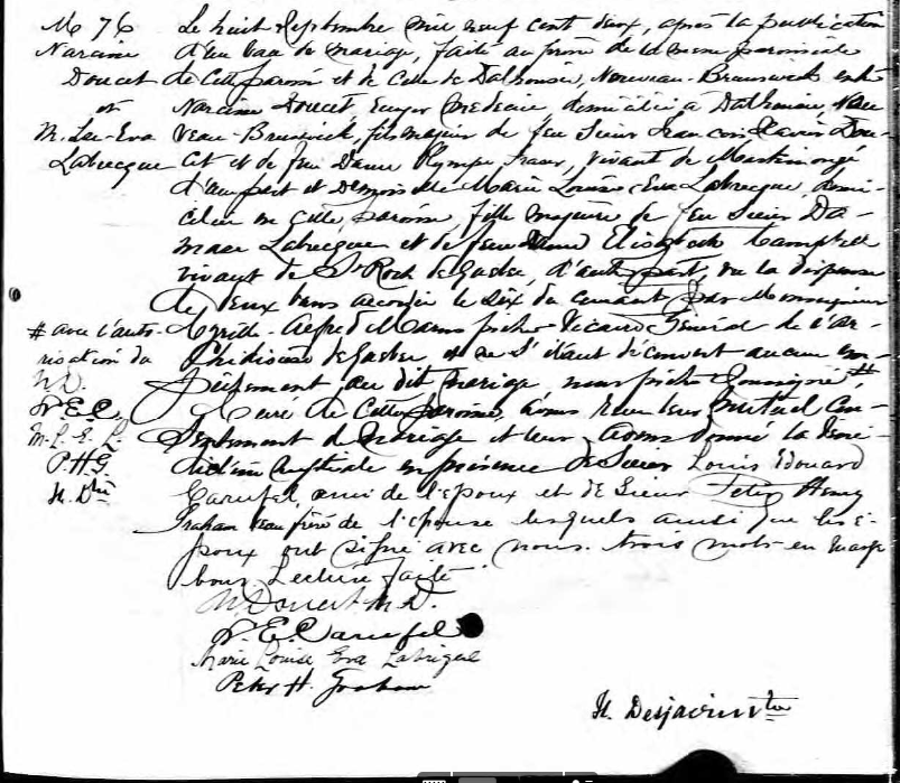 M 76
Narcisse
Doucet
et
M. Lse-Eva
Labrecque
Le huit Septembre mil neuf cent deux, après la publication
d'un ban de mariage, faite au prône de la messe paroissiale
de cette paroisse et de celle de Dalhousie, Nouveau-Brunswick entre
Narcisse Doucet, Ecuyer Médecin, domicilié à Dalhousie, Nou
veau-Brunswick, fils majeur de feu Sieur François Xavier Dou-
cet et de feu Dame Olympe, vivant de
d'une part et Demoiselle Marie Louise Eva Labrecque, domi-
ciliée en cette paroisse, fille majeure de feu Sieur Da-
mase Labrecque et de feu Dame Elizabeth Campbell
vivant de St Roch de Québec, d'autre part, vu la dispense
de deux bans accordée le six du courant par Monseigneur
Cyrille-Alfred Marois prêtre Vicaire Général de l'ar-
chidiocèse de Québec, et ne s'étant découvert aucun em-
pêchement au dit mariage, nous prêtre soussigné #
Curé de cette paroisse, avons reçu leur mutuel con-
sentement de mariage et leur avons donné la béné-
diction nuptiale en présence de Sieur Louis Edouard
Carufel, ami de l'époux et de Sieur Peter Henry
Graham beau frère de l'épouse lesquels ainsi que les é-
poux ont signé avec nous. trois mots en marge
bons. Lecture faite
# avec l'auto-
risation du
N.D.
L. E. C.
M. L. E. L.
P. H. G.
H. Dtre
N. Doucet M.D.
L. E. Carufel
Marie Louise Eva Labrecque
Peter H. Graham
H. Desjardins Ptre